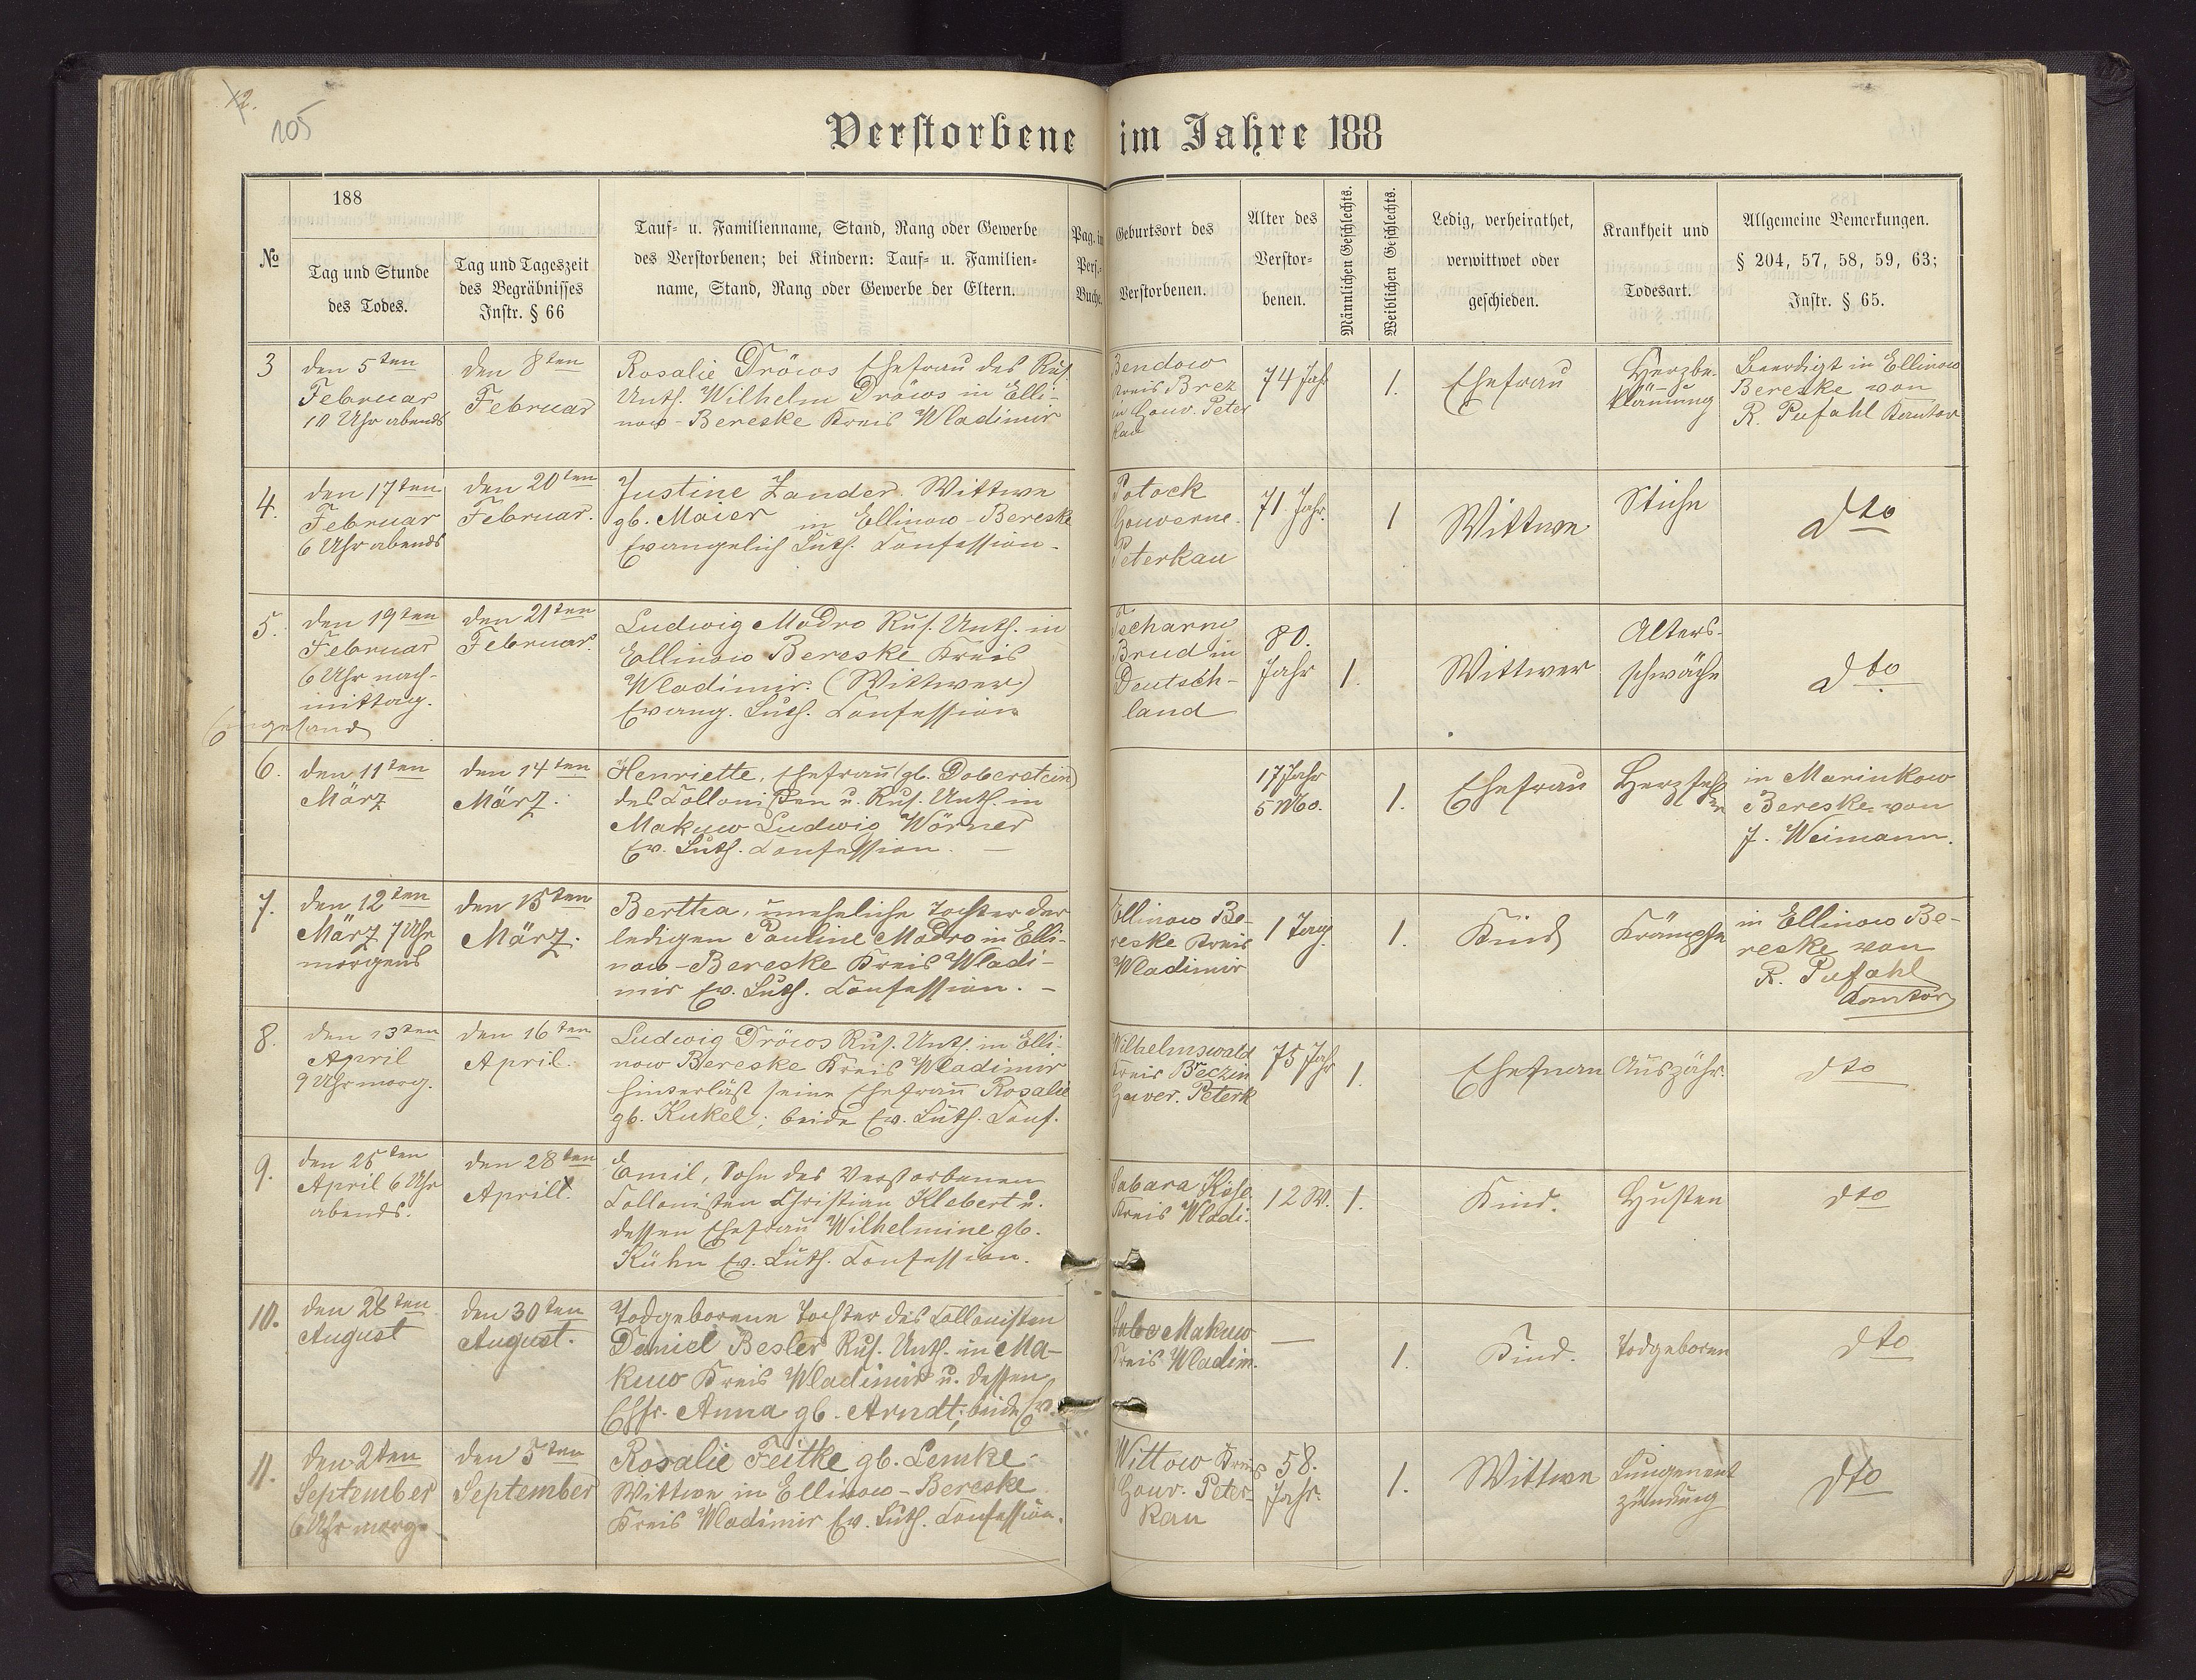 12.
105
Verstorbene im Jahre 188
№
188
Tag und Stunde
des Todes.
Tag und Tageszeit
des Begräbnisses
Instr. § 66
Tauf- u. Familienname, Stand, Rang oder Gewerbe
des Verstorbenen; bei Kindern: Tauf- u. Familien-
name, Stand, Rang oder Gewerbe der Eltern.
Pag. in
Pers.-
Buche.
Geburtsort des
Verstorbenen.
Alter des
Verstor-
benen.
Männlichen Geschlechts.
Weiblichen Geschlechts.
Ledig, verheirathet,
verwittwet oder
geschieden.
Krankheit und
Todesart.
Allgemeine Bemerkungen.
§ 204, 57, 58, 59, 63;
Instr. § 65.
3
den 5ten
Februar
10 Uhr abends
den 8ten
Februar
Rosalie Dröws Ehefrau des Rus.
Unth. Wilhelm Dröws in Elli-
now-Bereske Kreis Wladimir
Bendow
Kreis Brez
in Gouv. Peter
kau
74 Jah
1.
Ehefrau
Herzbe-
klämung
Beerdigt in Ellinow
Bereske von
R. Pufahl Kantor
4.
den 17ten
Februar
6 Uhr abends
den 20ten
Februar.
Justine Zander Wittwe
gb. Maier in Ellinow-Bereske
Evangelisch Luth. Confession.
Potock
Gouverne.
Peterkau
71 Jahr.
1
Wittwe
Stiche
dto
5.
den 19ten
Februar
6 Uhr nach-
mittag.
den 21ten
Februar.
Ludwig Modro Rus. Unth. in
Ellinow Bereske Kreis
Wladimir. (Wittwer)
Evang. Luth. Confession
Tscharne
Brud in
Deutsch-
land
80.
Jahr
1.
Wittwer
Alters-
schwäche
dto
Eingesand
6.
den 11ten
März
den 14ten
März.
Henriette, Ehefrau (gb. Doberstein)
des Collonisten u. Rus. Unth. in
Makuw Ludwig Wörner
Ev. Luth. Confession.
17 Jahr
5 Mo.
1.
Ehefrau
Herzfehler
in Marinkow
Bereske von
J. Weimann.
7.
den 12ten
März 7 Uhr
morgens
den 15ten
März.
Bertha, uneheliche Tochter der
ledigen Pauline Modro in Elli-
now-Bereske Kreis Wladi-
mir Ev. Luth. Confession.
Ellinow Be-
reske Kreis
Wladimir
1 Tag.
1.
Kind
Krämpfe
in Ellinow Be-
reske von
R. Pufahl
Kantor
8.
den 13ten
April
9 Uhr morg.
den 16ten
April.
Ludwig Dröws Rus. Unth. in Elli-
now Bereske Kreis Wladimir
hinterläßt seine Ehefrau Rosalie
gb. Kukel; beide Ev. Luth. Conf.
Wilhelmswald
Kreis Beczin
Gover. Peterk
75 Jahr
1.
Ehemann
Auszähr.
dto
9.
den 25ten
April 6 Uhr
abends.
den 28ten
April.
Emil, Sohn des Verstorbenen
Collonisten Christian Klebert u.
dessen Ehefrau Wilhelmine gb.
Kühn Ev. Luth. Confession.
Sabara Kise
Kreis Wladi.
12 W.
1.
Kind.
Husten
dto
10.
den 28ten
August
den 30ten
August.
Todgeborene Tochter des Collonisten
Daniel Besler Rus. Unth. in Ma-
kuw Kreis Wladimir u. dessen
Ehfr. Anna gb. Arndt; beide Ev.
Makuw
Kreis Wladim.
—
1.
Kind.
Todgeboren
dto
11.
den 2ten
September
6 Uhr morg.
den 5ten
September
Rosalie Feitke gb. Lemke
Wittwe in Ellinow-Bereske
Kreis Wladimir Ev. Luth. Confession.
Wittow Kreis
Gouv. Peter-
kau
58.
Jahr.
1.
Wittwe
Lungenent
zündung
dto